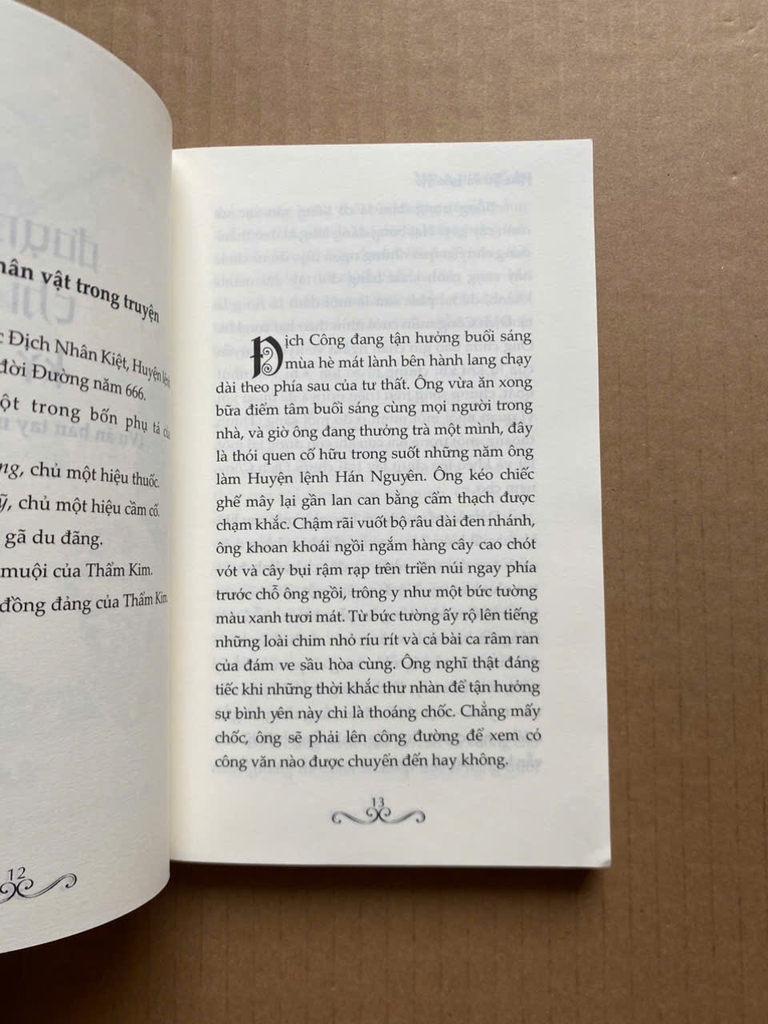 hân vật trong truyện
Địch Nhân Kiệt, Huyện
đời Đường năm 666.
ột trong bốn phụ tá của
ng, chủ một hiệu thuốc.
ỹ, chủ một hiệu cầm cố.
gã du đãng.
muội của Thẩm Kim.
đồng đảng của Thẩm Kim.
12
Địch Công đang tận hưởng buổi sáng
mùa hè mát lành bên hành lang chạy
dài theo phía sau của tư thất. Ông vừa ăn xong
bữa điểm tâm buổi sáng cùng mọi người trong
nhà, và giờ ông đang thưởng trà một mình, đây
là thói quen cố hữu trong suốt những năm ông
làm Huyện lệnh Hán Nguyên. Ông kéo chiếc
ghế mây lại gần lan can bằng cẩm thạch được
chạm khắc. Chậm rãi vuốt bộ râu dài đen nhánh,
ông khoan khoái ngồi ngắm hàng cây cao chót
vót và cây bụi rậm rạp trên triền núi ngay phía
trước chỗ ông ngồi, trông y như một bức tường
màu xanh tươi mát. Từ bức tường ấy rộ lên tiếng
những loài chim nhỏ ríu rít và cả bài ca râm ran
của đám ve sầu hòa cùng. Ông nghĩ thật đáng
tiếc khi những thời khắc thư nhàn để tận hưởng
sự bình yên này chỉ là thoáng chốc. Chẳng mấy
chốc, ông sẽ phải lên công đường để xem có
công văn nào được chuyển đến hay không.
13